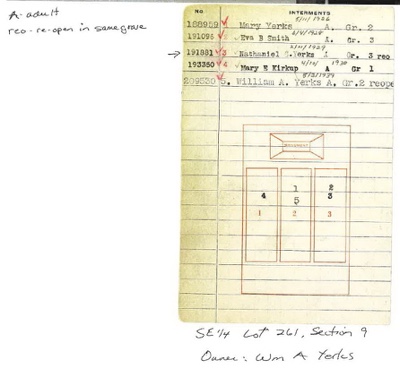 A - adult
reo - re-open in same grave
NO INTERMENTS
188959 Mary Yerks A. Gr. 2
191095 2 Eva B Smith A. Gr. 3
→ 191881 3 Nathaniel Yerks A Gr. 3 reo
193350 4 Mary E Kirkup A Gr 1
209530 5. William A. Yerks A. Gr.2 reope
MONUMENT
1 2
4 5 3
1 2 3
SE 1/4 Lot 261, Section 9
Owner: Wm A Yerks